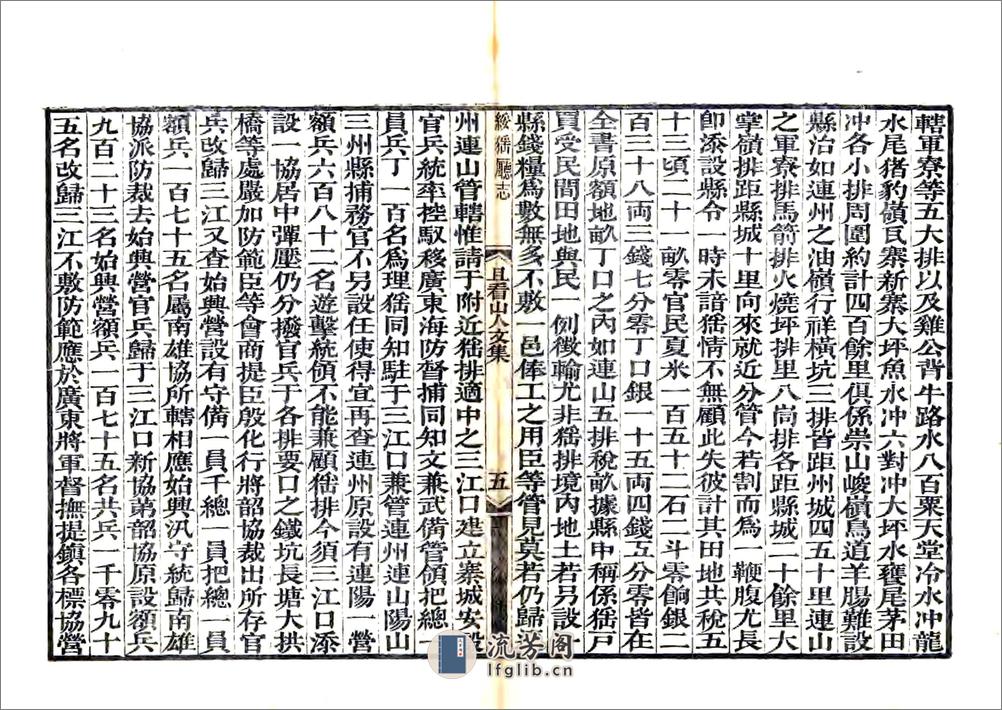 轄軍寮等五大排以及雞公背牛路水八百粟天堂冷水冲龍
水尾猪豹嶺瓦寨新寨大坪魚水冲六對冲大坪水甕尾茅田
冲各小排周圍約計四百餘里俱係崇山峻嶺鳥道羊腸難設
縣治如連州之油嶺行祥橫坑三排皆距州城四五十里連山
之軍寮排馬箭排火燒坪排里八峝排各距縣城二十餘里大
掌嶺排距縣城十里向來就近分管今若割而爲一鞭腹尤長
卽添設縣令一時未諳猺情不無顧此失彼計其田地共稅五
十三頃二十一畝零官民夏米一百五十二石二斗零餉銀二
百三十八両三錢七分零丁口銀一十五両四錢五分零皆在
全書原額地畝丁口之內如連山五排稅畝據縣申稱係猺戸
買受民間田地與民一例徵輸尤非猺排境內地土若另設一
縣錢糧爲數無多不敷一邑俸工之用臣等管見莫若仍歸連
綏猺廳志
且看山人文集
五
州連山管轄惟請于附近猺排適中之三江口建立寨城安設
官兵統率控馭移廣東海防督捕同知文兼武備管領把總一
員兵丁一百名爲理猺同知駐于三江口兼管連州連山陽山
三州縣捕務官不另設任使得宜再查連州原設有連陽一營
額兵六百八十二名遊擊統領不能兼顧猺排今須三江口添
設一協居中彈壓仍分撥官兵于各排要口之鐵坑長塘大拱
橋等處嚴加防範臣等會商提臣殷化行將韶協裁出所存官
兵改歸三江又查始興營設有守備一員千總一員把總一員
額兵一百七十五名屬南雄協所轄相應始興汛守統歸南雄
協派防裁去始興營官兵歸于三江口新協第韶協原設額兵
九百二十三名始興營額兵一百七十五名共兵一千零九十
五名改歸三江不敷防範應於廣東將軍督撫提鎮各標協營
流芳閣
lfglib.cn